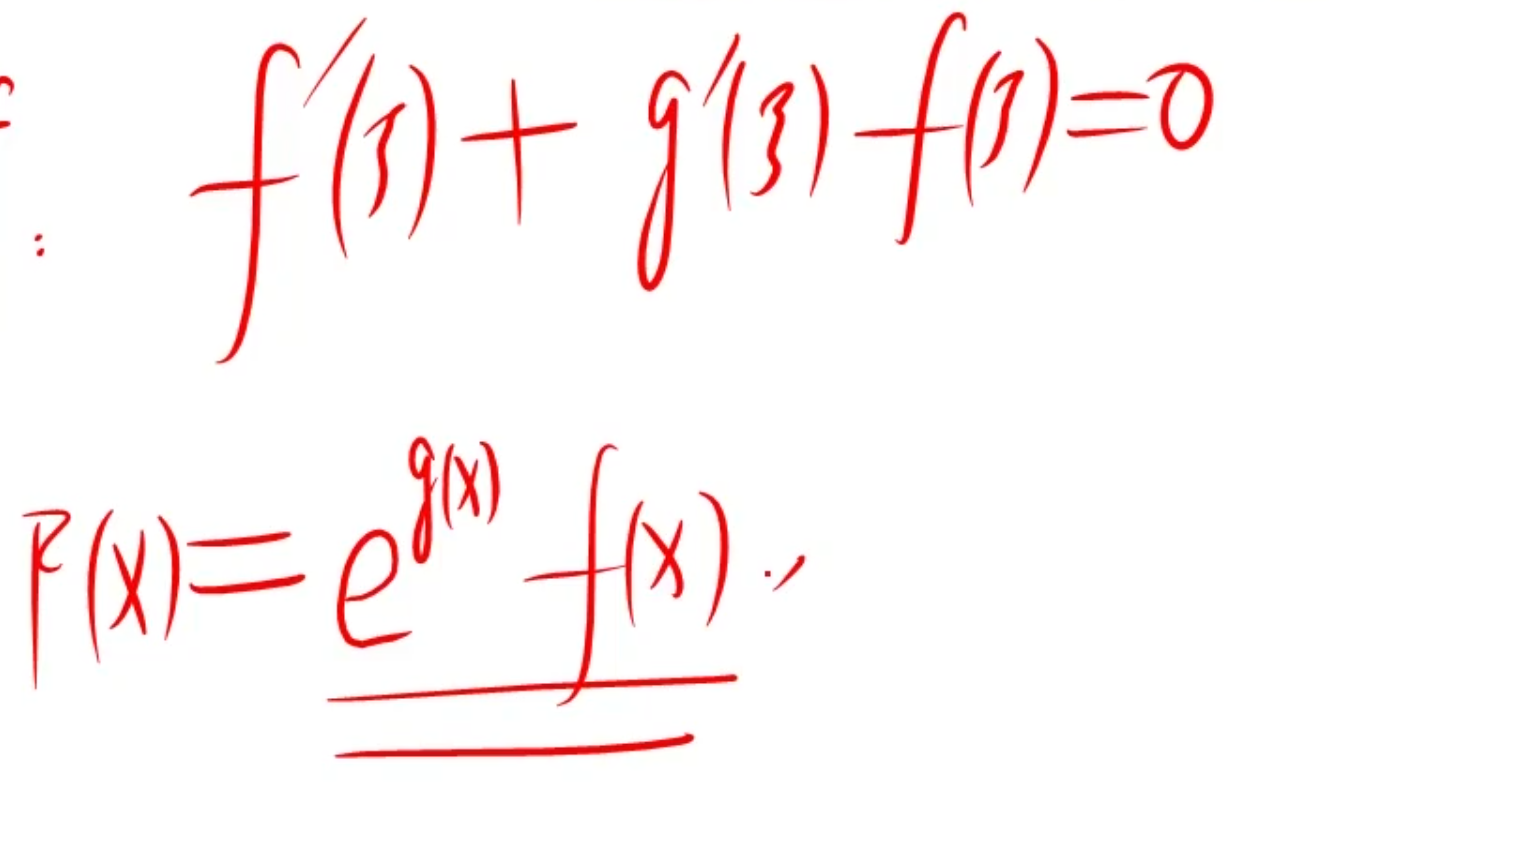 f'(ξ) + g'(ξ) f(ξ) = 0
:
F(x) = e^{g(x)} f(x).,